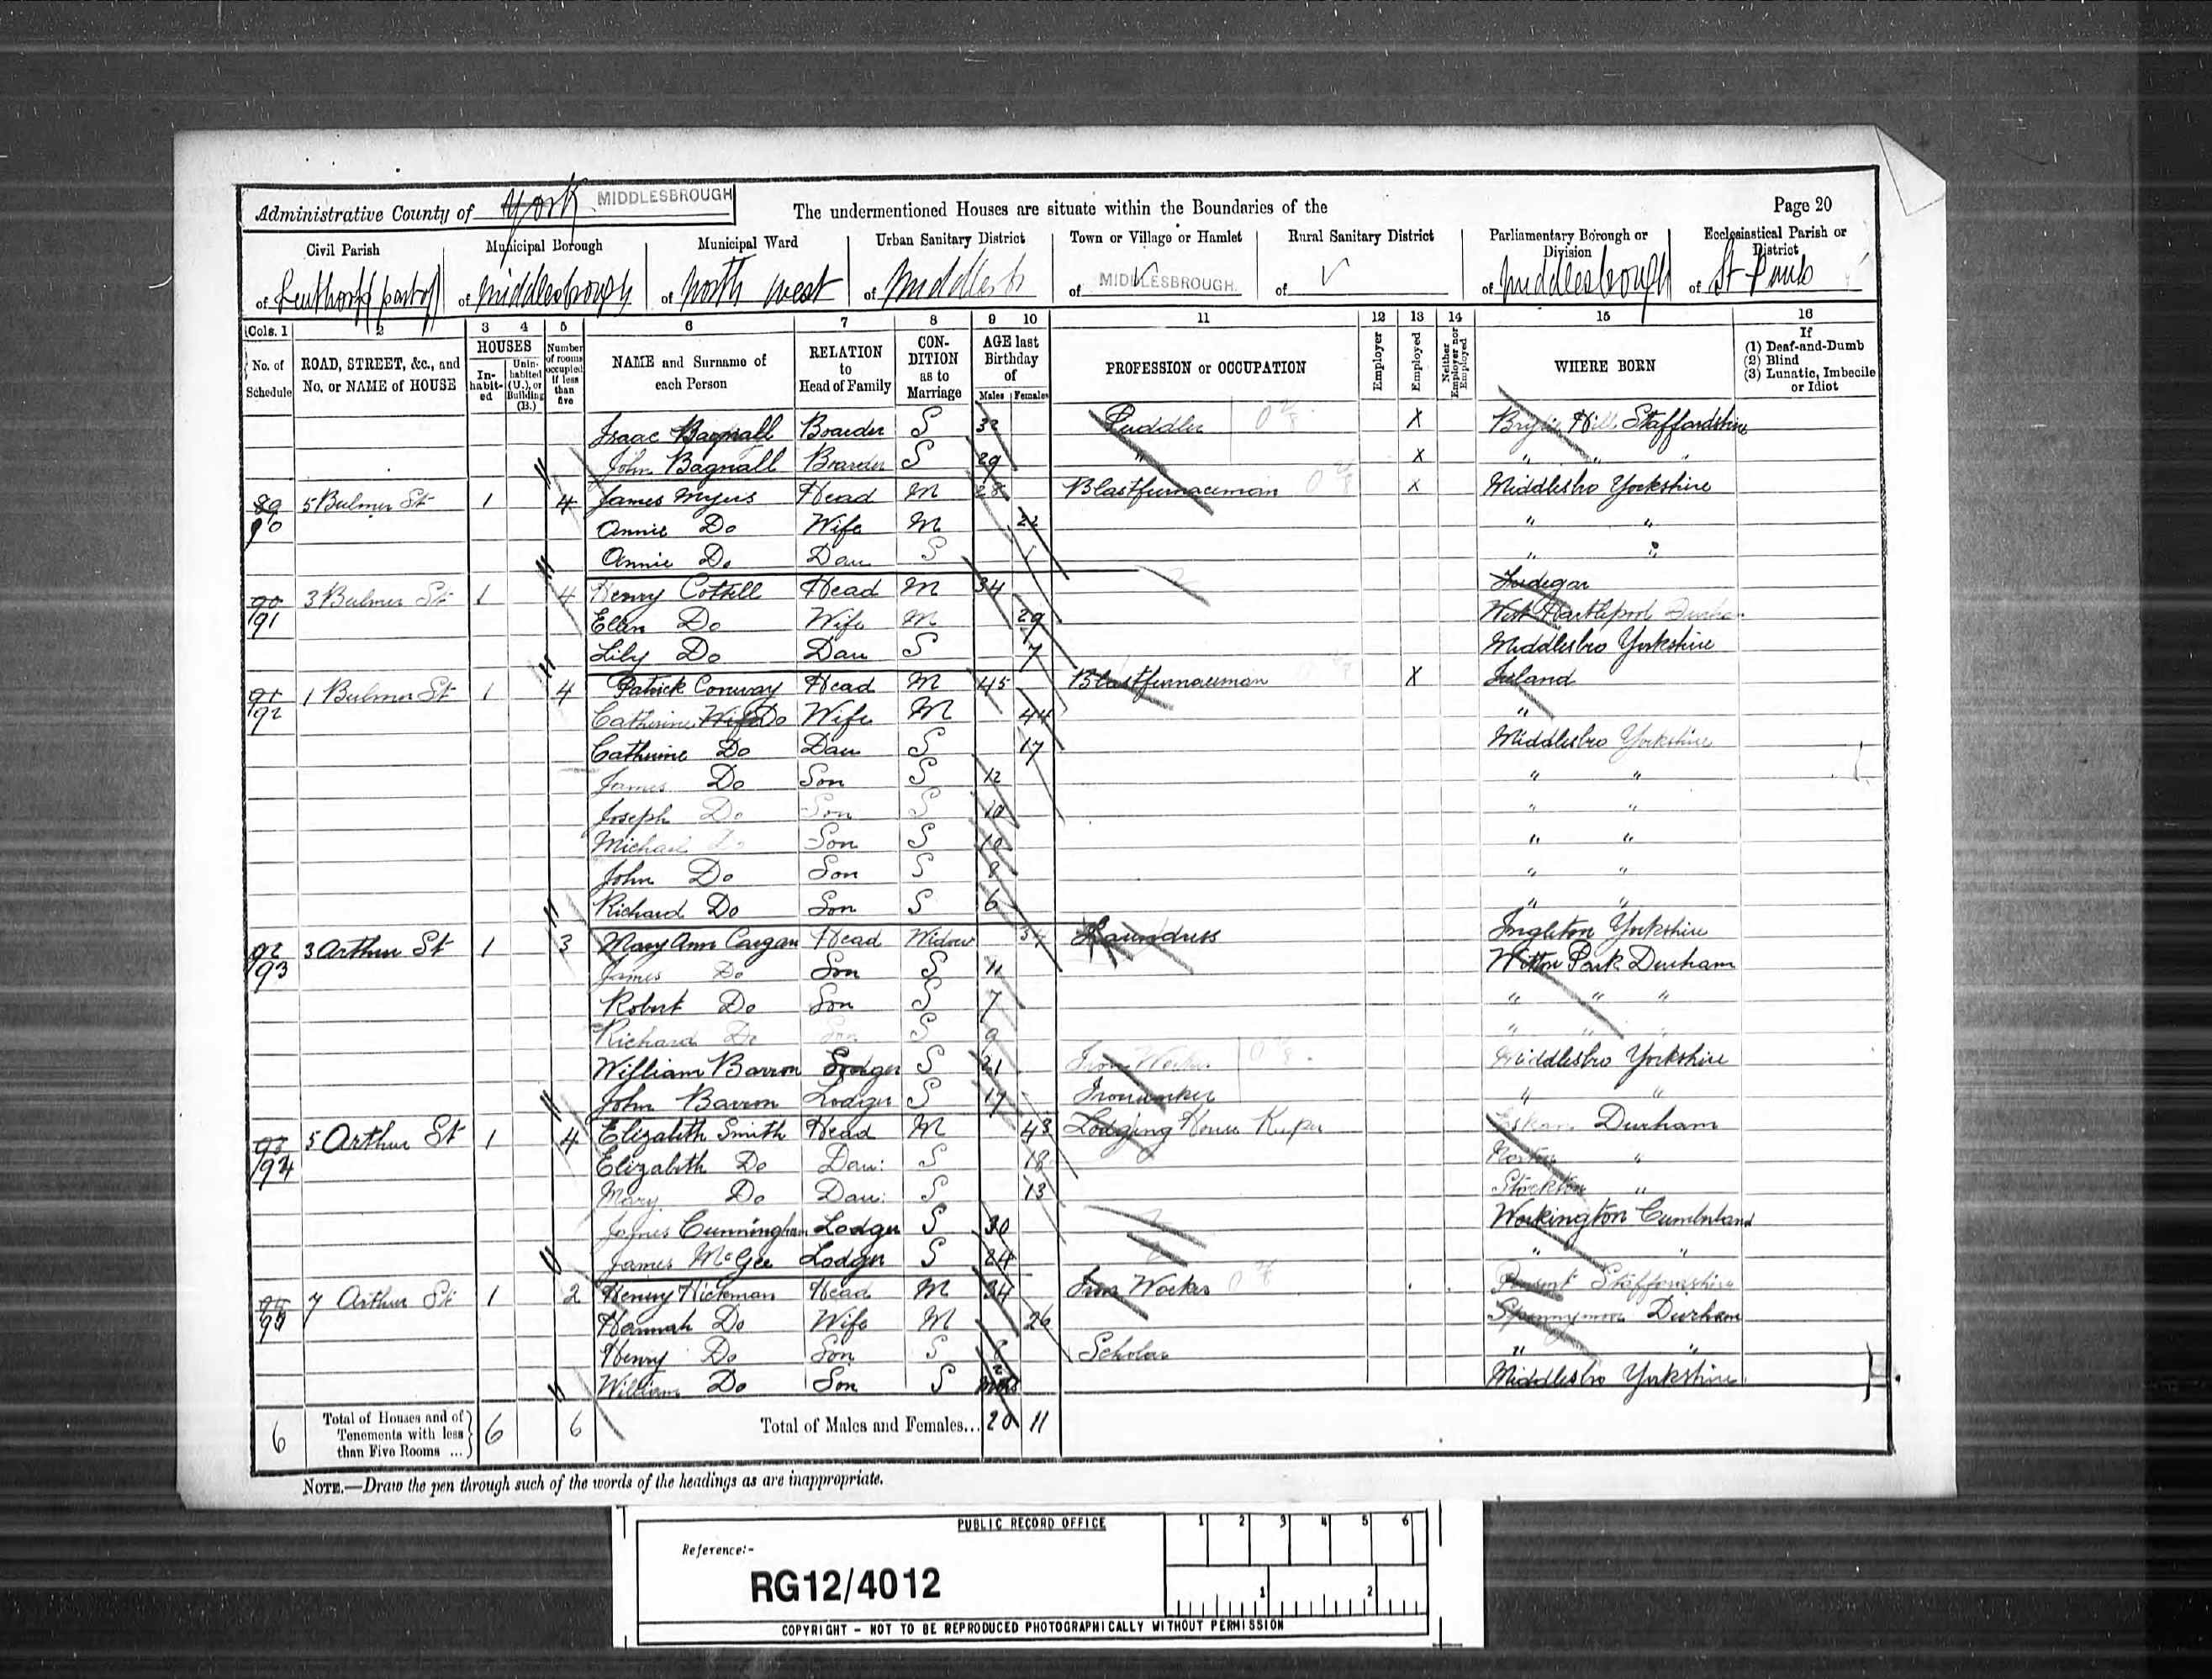 Administrative County of York MIDDLESBROUGH The undermentioned Houses are situate within the Boundaries of the Page 20
Civil Parish Municipal Borough Municipal Ward Urban Sanitary District Town or Village or Hamlet Rural Sanitary District Parliamentary Borough or Division Ecclesiastical Parish or District
of Linthorpe (part of) of Middlesbrough of North West of Middlesb of MIDDLESBROUGH. of of Middlesbrough of St Pauls
Cols. 1 2 3 4 5 6 7 8 9 10 11 12 13 14 15 16
No. of Schedule ROAD, STREET, &c., and No. or NAME of HOUSE HOUSES Inhabited Uninhabited (U.), or Building (B.) Number of rooms occupied if less than five NAME and Surname of each Person RELATION to Head of Family CONDITION as to Marriage AGE last Birthday of Males Females PROFESSION or OCCUPATION Employer Employed Neither Employer nor Employed WHERE BORN If (1) Deaf-and-Dumb (2) Blind (3) Lunatic, Imbecile or Idiot
Isaac Bagnall Boarder S 32 Puddler X Hill Staffordshire
John Bagnall Boarder S 29 " X " " "
89 90 5 Bulmer St 1 4 James Myers Head M 28 Blastfurnaceman X Middlesbro Yorkshire
Annie Do Wife M 22 " "
Annie Do Dau S 1 " "
90 91 3 Bulmer St 1 4 Henry Head M 34
Ellen Do Wife M 29 West Hartlepool Durham
Lily Do Dau S 7 Middlesbro Yorkshire
91 92 1 Bulmer St 1 4 Patrick Conway Head M 45 Blastfurnaceman X Ireland
Catherine Wife Do Wife M 44 "
Catherine Do Dau S 17 Middlesbro Yorkshire
James Do Son S 12 " "
Joseph Do Son S 10 " "
Michael Do Son S 10 " "
John Do Son S 8 " "
Richard Do Son S 6 " "
92 93 3 Arthur St 1 3 Mary Ann Head Widow Laundress Ingleton Yorkshire
James Do Son S 11 Witton Park Durham
Robert Do Son S 7 " " "
Richard Do Son S 9 " " "
William Barron Lodger S 21 Iron Worker Middlesbro Yorkshire
John Barron Lodger S 17 Ironworker " "
93 94 5 Arthur St 1 4 Elizabeth Smith Head M 43 Lodging House Keeper Durham
Elizabeth Do Dau: S 18 Norton "
Mary Do Dau: S 13 Stockton "
James Cunningham Lodger S 30 Workington Cumberland
James McGee Lodger S 24 " "
7 Arthur St 1 2 Henry Hickman Head M 34 Iron Worker Staffordshire
Hannah Do Wife M 26 Spennymoor Durham
Henry Do Son S 8 Scholar " "
William Do Son S 2 mths Middlesbro Yorkshire
6 Total of Houses and of Tenements with less than Five Rooms ... 6 6 Total of Males and Females... 20 11
NOTE.—Draw the pen through such of the words of the headings as are inappropriate.
PUBLIC RECORD OFFICE 1 2 3 4 5 6
Reference:-
RG12/4012 1 2
COPYRIGHT - NOT TO BE REPRODUCED PHOTOGRAPHICALLY WITHOUT PERMISSION